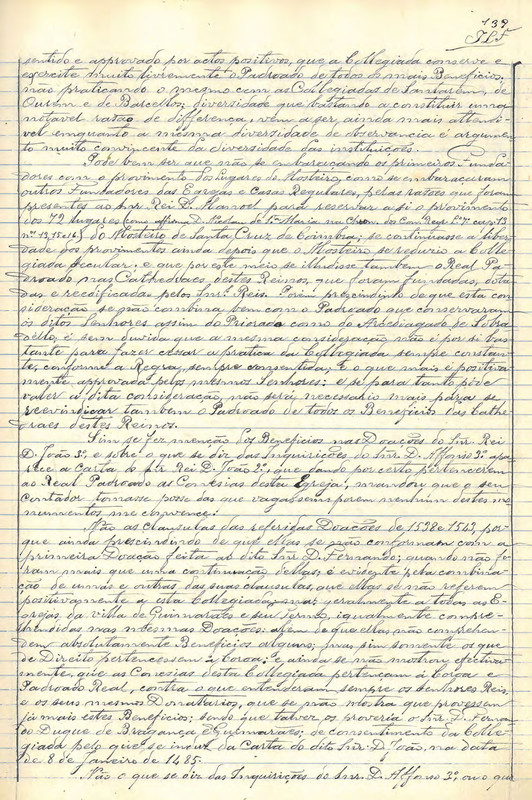 139
sentido e approvado por actos positivos, que a Collegiada conserve e
exercite muito livremente o Padroado de todos os mais Beneficios,
não praticando o mesmo com as Collegiadas de Santarem, de
Ourem e de Barcellos; diversidade que bastando a constituir uma
notavel rasão de differença, vem a ser ainda mais attendi-
vel emquanto a mesma diversidade de observancia é argumen-
to muito convincente da diversidade das instituições.
Pode bem ser que não se embaraçando os primeiros Funda-
dores com o provimento dos lugares do Mosteiro, como se embaraçaram
outros Fundadores das Egrejas e Casas Regulares, pelas rasões que foram
presentes ao Snr. Rei D. Manoel para reservar a si o provimento
dos 72 lugares (como affirm. D. Nicolau de S.ta Maria na Chron. dos Con. Reg. L. 7 cap. 13
n.os 13, 15 e 16) do Mosteiro de Santa Cruz de Coimbra; se continuasse a liber-
dade dos provimentos ainda depois que o Mosteiro se reduziu a Colle-
giada secular, e que por este meio se illudisse tambem o Real Pa-
droado nas Cathedraes destes Reinos, que foram fundadas, dota-
das e reedificadas pelos Snrs. Reis. Porém prescindindo de que esta con-
sideração se não combina bem com o Padroado que conservaram
os ditos Senhores assim do Priorado como do Arcediagado de Sobra-
dello, é sem duvida que a mesma consideração não é por si bas-
tante para fazer cessar a pratica da Collegiada sempre constan-
te, conforme a Regra, sempre consentida, e o que mais é positiva-
mente approvada pelos mesmos Senhores: e se para tanto pode
valer a dita consideração, não será necessario mais para se
reevindicar tambem o Padroado de todos os Beneficios das Cathe-
draes destes Reinos.
Sim se fez menção dos Beneficios nas Doações do Snr. Rei
D. João 3.º, e sobre o que se diz das Inquirições do Snr. D. Affonso 3.º apa-
rece a Carta do Snr. Rei D. João 2.º, que dando por certo pertencerem
ao Real Padroado as Conesias desta Egreja, mandou que o seu
contador tomasse posse das que vagassem; porem nenhum destes mo-
numentos me convence.
Não as clausulas das referidas Doações de 1528 e 1542, por-
que ainda prescindindo de que ellas se não conformam com a
primeira Doação feita ao dito Snr. D. Fernando; quando não fo-
ram mais que uma continuação dellas; é evidente pela combina-
ção de umas e outras das suas clausulas, que ellas se não referem
positivamente a esta Collegiada, mas geralmente a todas as E-
grejas da villa de Guimarães e seu Termo, igualmente compre-
hendidas nas mesmas Doações: alem de que ellas não comprehen-
dem absolutamente Beneficios alguns; mas sim somente os que
de Direito pertencessem á Coroa; e ainda se não mostrou effectiva-
mente, que as Conesias desta Collegiada pertençam á Coroa e
Padroado Real, contra o que entenderam sempre os Senhores Reis,
e os seus mesmos Donatarios, que se não mostra que provessem
já mais estes Beneficios: sendo que talvez os proveria o Snr. D. Fernan-
do Duque de Bragança e Guimarães, de consentimento da Colle-
giada pelo que se induz da Carta do dito Snr. D. João, na data
de 8 de Janeiro de 1485.
Não o que se diz das Inquirições do Snr. D. Affonso 3.º, ou o que